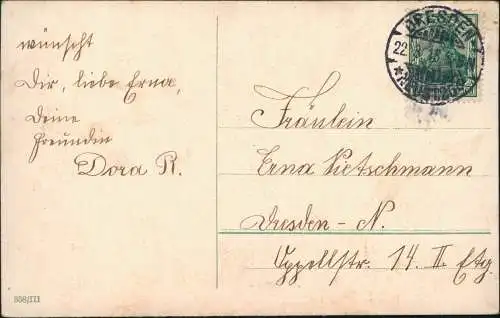 wünscht
Dir, liebe Erna,
Deine
Freundin
Dora P.
DRESDEN
22.
Fräulein
Erna Pietschmann
Dresden - N.
Appellstr. 14. II. Etg.
358/III